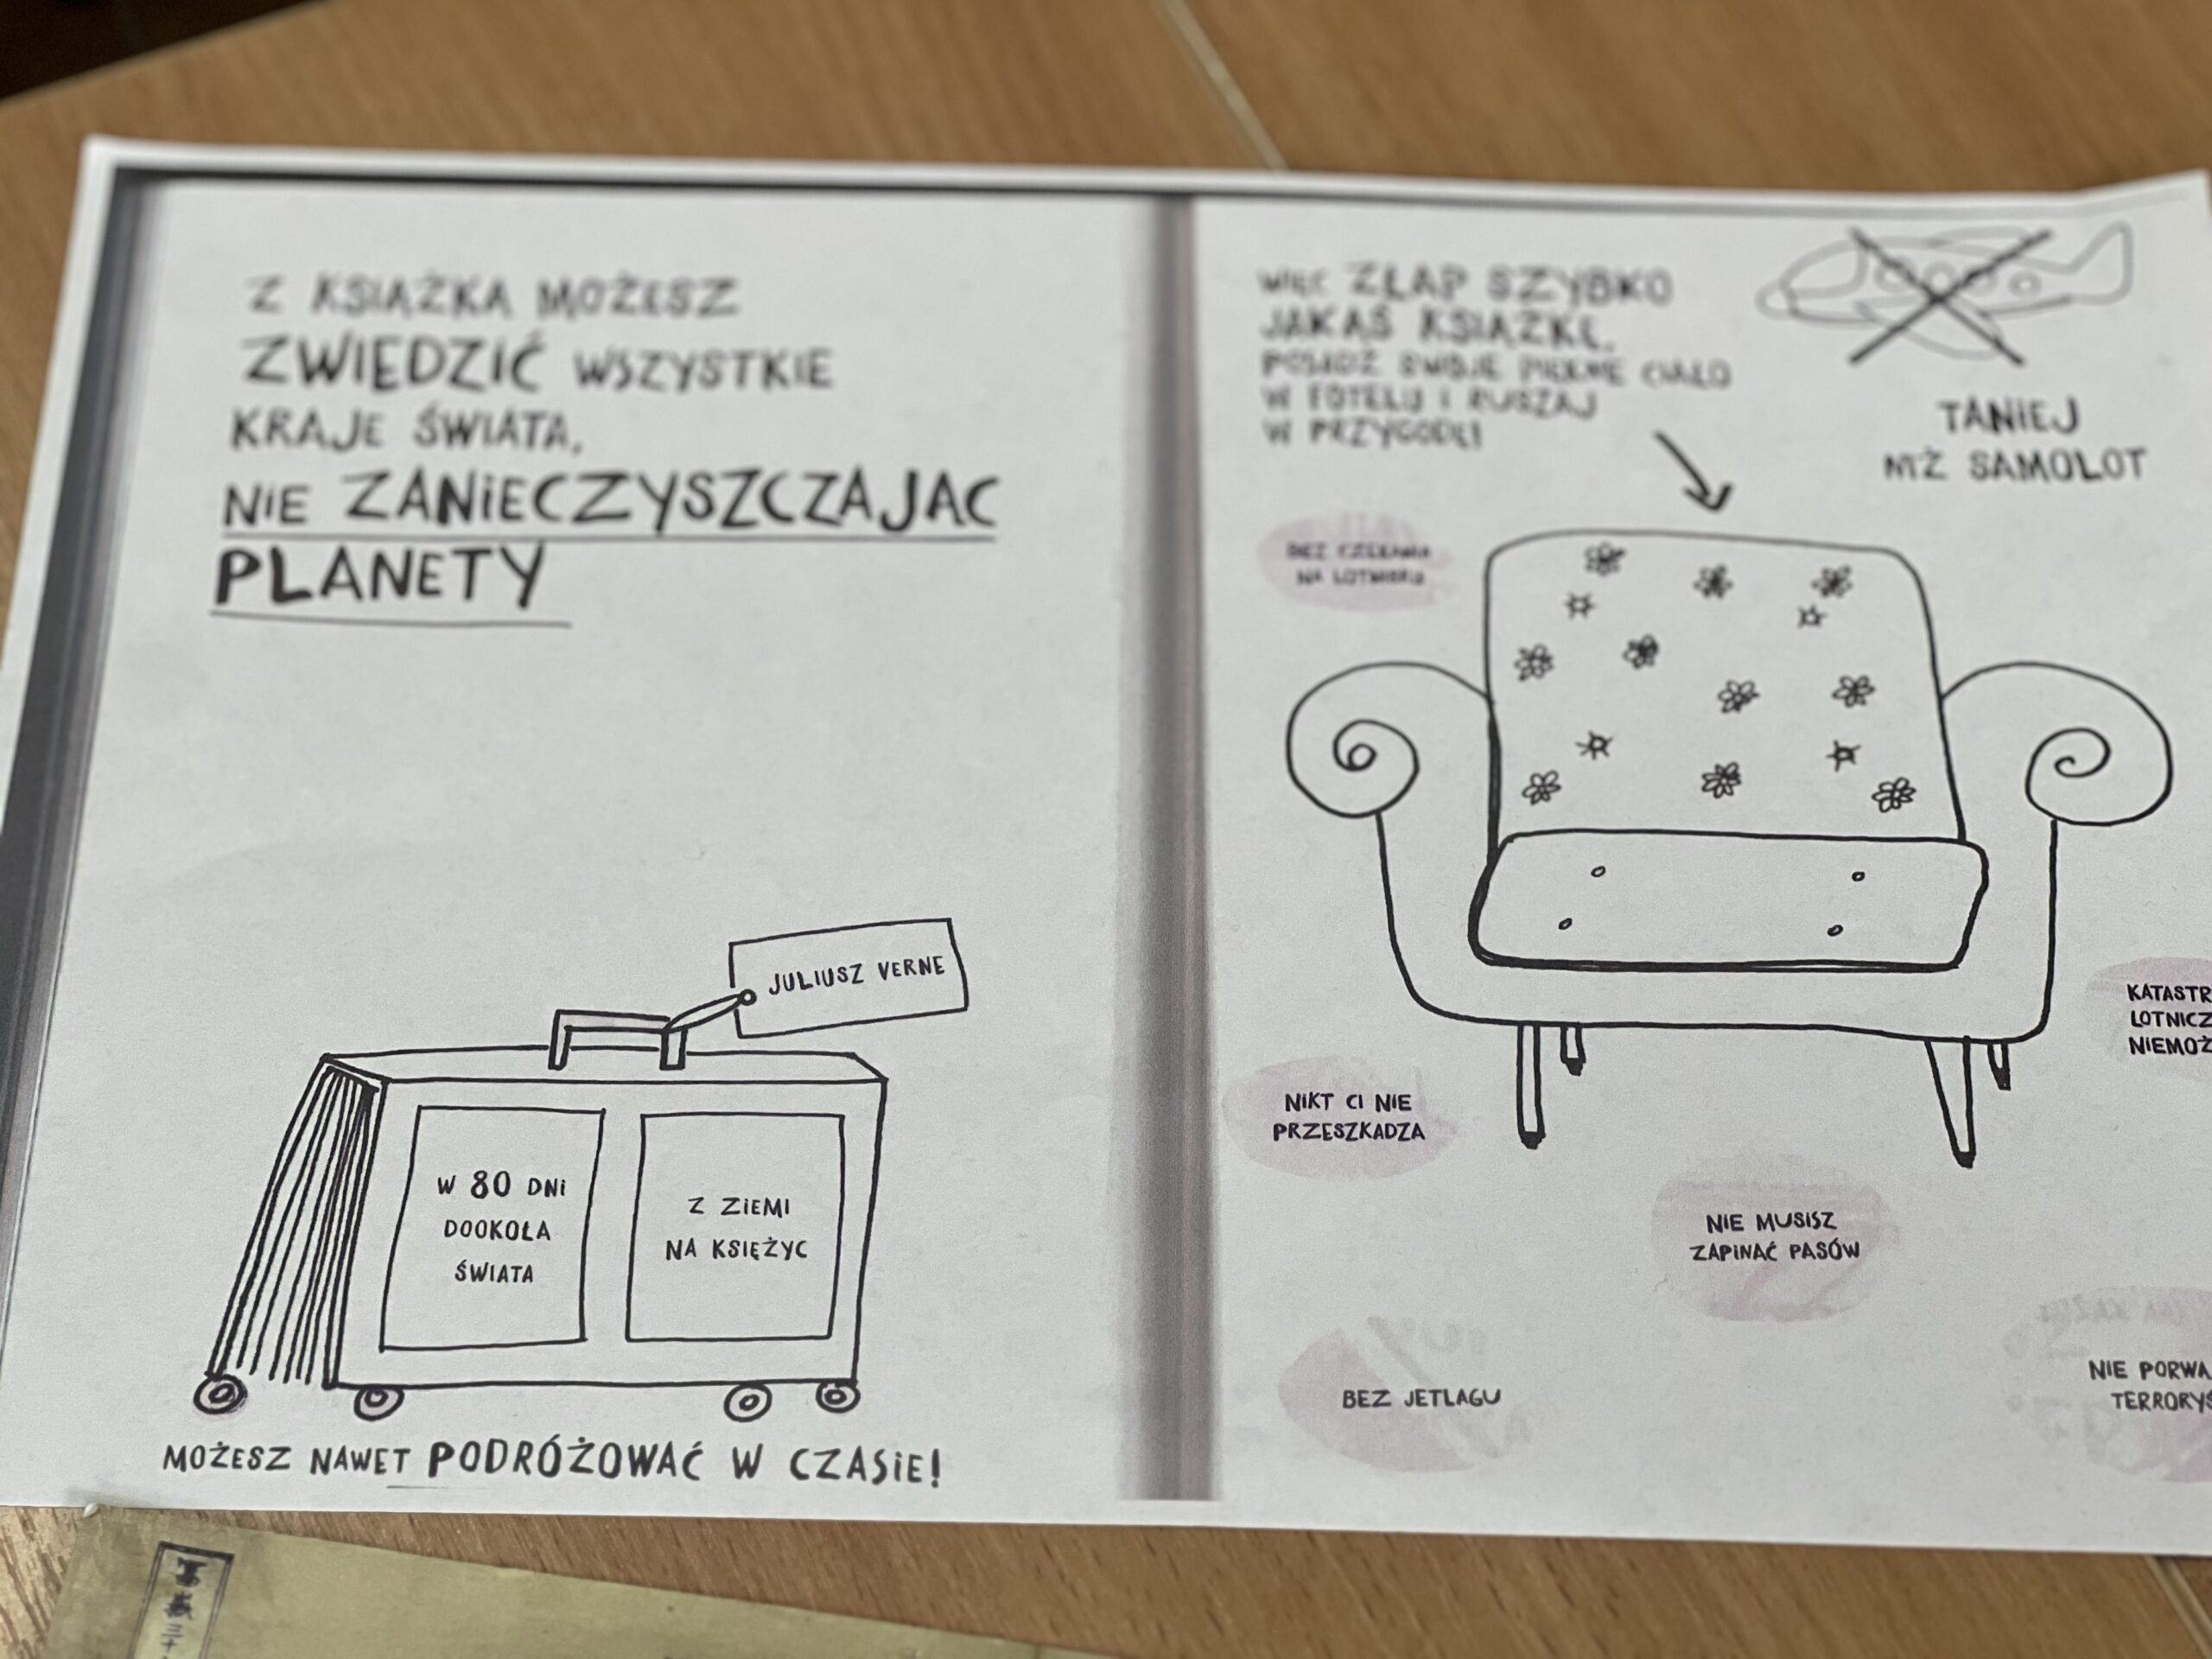 Z KSIĄŻKĄ MOŻESZ
ZWIEDZIĆ WSZYSTKIE
KRAJE ŚWIATA,
NIE ZANIECZYSZCZAJĄC
PLANETY
JULIUSZ VERNE
W 80 DNI
DOOKOŁA
ŚWIATA
Z ZIEMI
NA KSIĘŻYC
MOŻESZ NAWET PODRÓŻOWAĆ W CZASIE!
WIĘC ZŁAP SZYBKO
JAKĄŚ KSIĄŻKĘ,
POŁÓŻ SWOJE PIĘKNE CIAŁO
W FOTELU I RUSZAJ
W PRZYGODĘ!
TANIEJ
NIŻ SAMOLOT
BEZ CZEKANIA
NA LOTNISKU
KATASTR
LOTNICZ
NIEMOŻ
NIKT CI NIE
PRZESZKADZA
NIE MUSISZ
ZAPINAĆ PASÓW
BEZ JETLAGU
NIE PORWA
TERRORYŚ